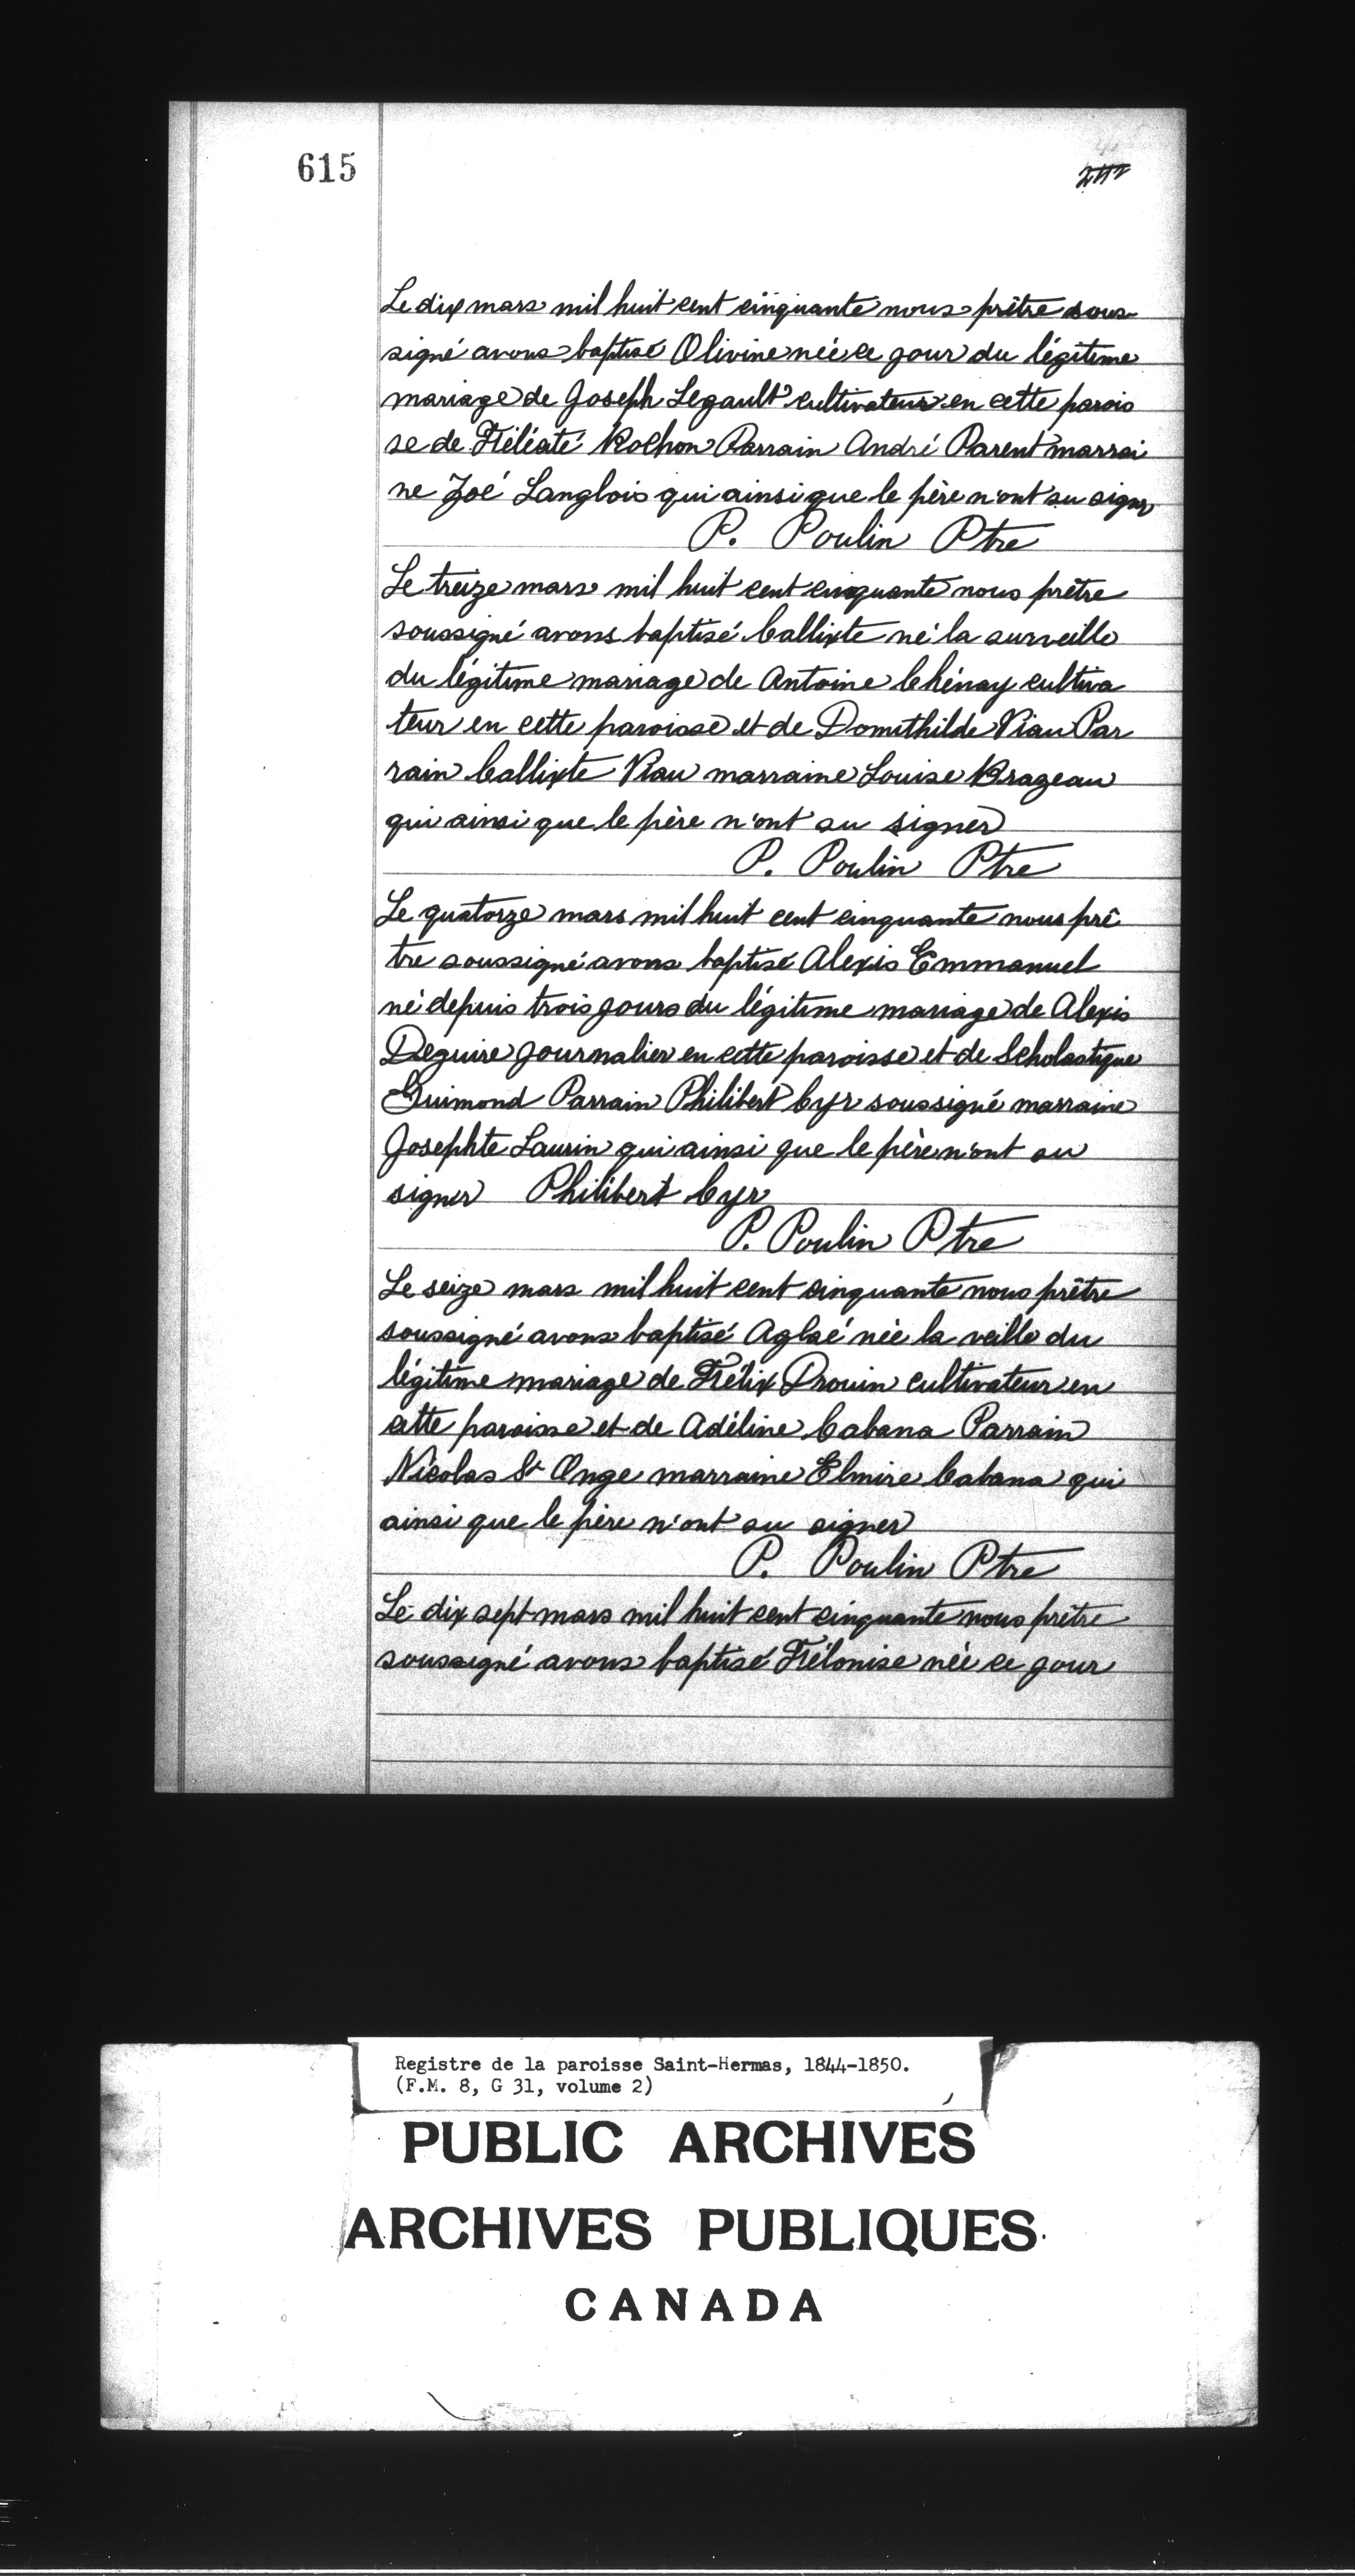 615
Le dix mars mil huit cent cinquante nous prêtre sous
signé avons baptisé Olivine née ce jour du légitime
mariage de Joseph Legault cultivateur en cette parois
se de Félécité Rochon Parrain André Parent marrai
ne Zoé Langlois qui ainsi que le père n'ont su signer
P. Poulin Ptre
Le treize mars mil huit cent cinquante nous prêtre
soussigné avons baptisé Callixte né la surveille
du légitime mariage de Antoine Chénay cultiva
teur en cette paroisse et de Domithilde Viau Par
rain Callixte Viau marraine Louise Brazeau
qui ainsi que le père n'ont su signer
P. Poulin Ptre
Le quatorze mars mil huit cent cinquante nous prê
tre soussigné avons baptisé Alexis Emmanuel
né depuis trois jours du légitime mariage de Alexis
Deguire journalier en cette paroisse et de Scholastique
Guimond Parrain Philibert Cyr soussigné marraine
Josephte Laurin qui ainsi que le père n'ont su
signer Philibert Cyr
P. Poulin Ptre
Le seize mars mil huit cent cinquante nous prêtre
soussigné avons baptisé Aglaé née la veille du
légitime mariage de Félix Drouin cultivateur en
cette paroisse et de Adéline Cabana Parrain
Nicolas St Onge marraine Elmire Cabana qui
ainsi que le père n'ont su signer
P. Poulin Ptre
Le dix sept mars mil huit cent cinquante nous prêtre
soussigné avons baptisé Félonise née ce jour
Registre de la paroisse Saint-Hermas, 1844-1850.
(F.M. 8, G 31, volume 2)
PUBLIC ARCHIVES
ARCHIVES PUBLIQUES
CANADA